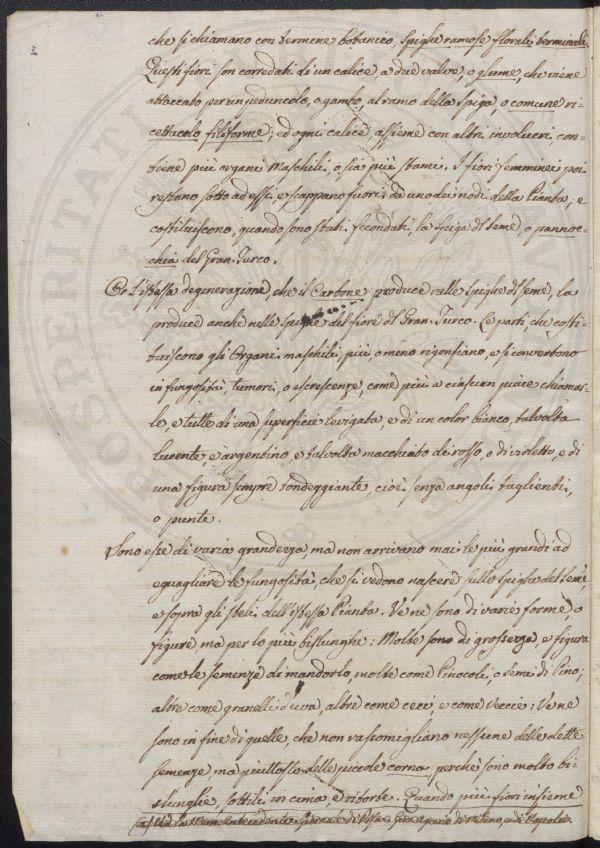 che si chiamano con termine botanico, spighe ramose florali terminali.
Questi fiori son corredati di un calice, a due valve, o glume, che viene
attaccato per un peduncolo, o gambo, al ramo della spiga, o comune ri=
cettacolo filiforme; ed ogni calice, assieme con altri involucri, con=
tiene più organi Maschili, o sia più stami. I fiori femminei poi
restano sotto ad essi, e scappano fuori da uno dei nodi della Pianta; e
costituiscono, quando sono stati fecondati, la spiga di seme, o pannoc=
chia del Gran-Turco.
Or l'istessa degenerazione, che il Carbone produce nelle spighe di seme, la
produce anche nelle spighe del fiore di Gran-Turco. Le parti, che costi=
tuiscono gli Organi maschili, più, o meno rigonfiano, e si convertono
in fungosità, tumori, o escrescenze, come più a ciascun piace chiamar=
lo, e tutte di una superficie levigata, e di un color bianco, talvolta
lucente, e argentino, e talvolta macchiato di rosso, o di violetto, e di
una figura sempre tondeggiante, cioè senza angoli taglienti,
o punte.
Sono esse di varia grandezza, ma non arrivano mai le più grandi ad
eguagliare le fungosità, che si vedono nascere sulle spighe del seme,
e sopra gli steli dell'istessa Pianta. Ve ne sono di varie forme, o
figure ma per lo più bislunghe: Molte sono di grossezza, e figura
come le semenze di mandorlo, molte come Pinocoli, o semi di Pino;
altre come granelli d'uva, altre come ceci, e come veccie: Ve ne
sono in fine di quelle, che non rassomigliano nessune delle dette
semenze, ma piuttosto delle piccole corna, perchè sono molto bi=
slunghe, sottili in cima, e ritorte. Quando più fiori insieme